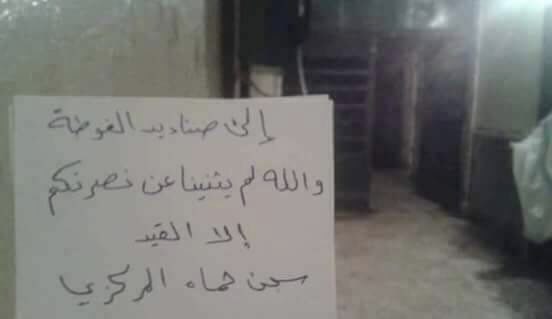 إلى صناديد الغوطة
والله لم يثنينا عن نصرتكم
إلا القيد
سجن حماه المركزي